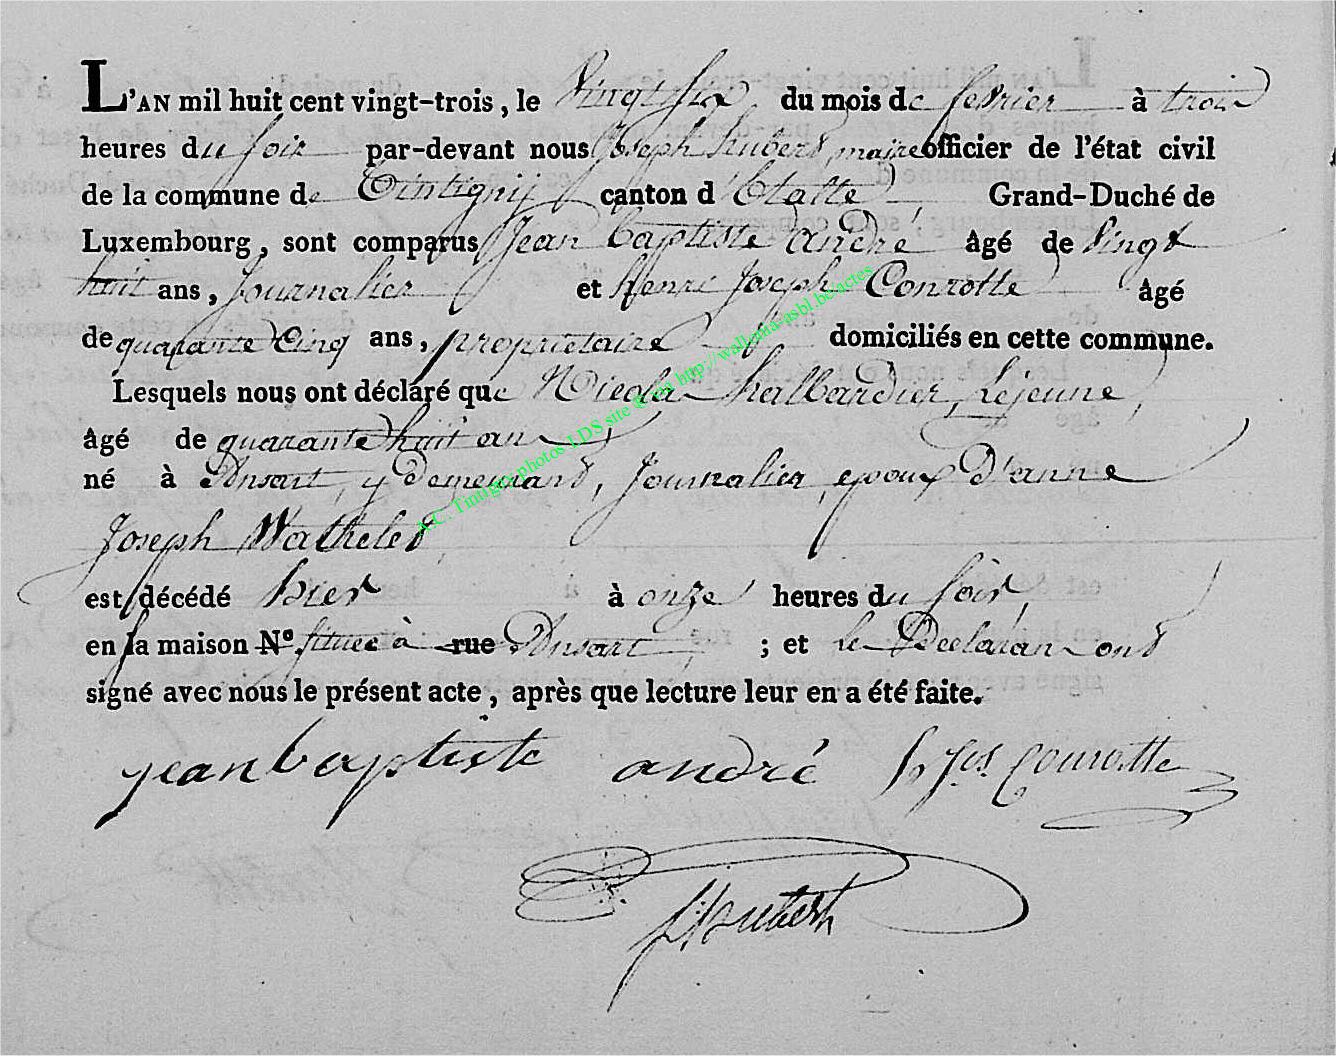 L'AN mil huit cent vingt-trois, le Vingt six du mois de fevrier à trois
heures du soir par-devant nous Joseph hubert maire officier de l'état civil
de la commune de Tintignij canton d'Etalle Grand-Duché de
Luxembourg, sont comparus Jean Baptiste andré âgé de Vingt
huit ans, Journalier et henri Joseph Conrotte âgé
de quarante Cinq ans, proprietaire domiciliés en cette commune.
Lesquels nous ont déclaré que Nicolas halbardier, Lejeune,
âgé de quarante huit ans
né à Ansart, y Demeurand, Journalier, epoux D'anne
Joseph Watheled
est décédé hier à onze heures du soir,
en la maison N° située à rue Ansart ; et Le Declaran ond
signé avec nous le présent acte, après que lecture leur en a été faite.
jean baptiste andré h Jos Conrotte
Hubert
A.C. Tintigny photos LDS site & via http://wallonia-asbl.be/actes